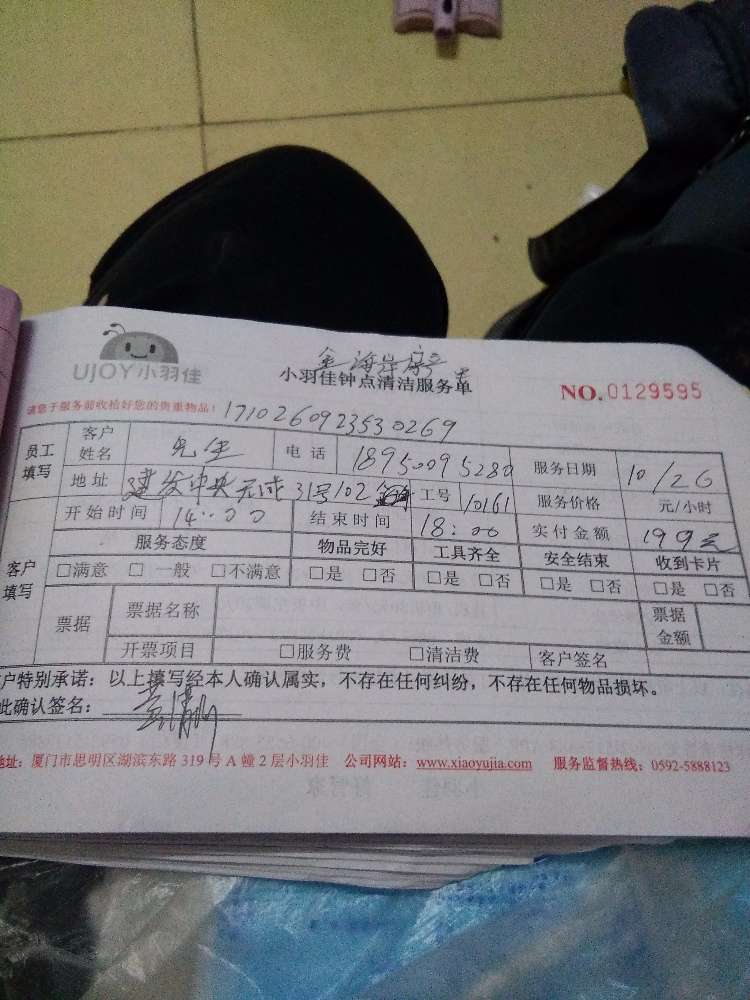 UJOY小羽佳
小羽佳钟点清洁服务单
NO.0129595
请您于服务前收检好您的贵重物品!
17102609235530269
员工填写 客户姓名 先生 电话 18950095280 服务日期 10/26
地址 建发中央天成31号102 工号 10161 服务价格 元/小时
开始时间 14:00 结束时间 18:00 实付金额 199元
客户填写 服务态度 物品完好 工具齐全 安全结束 收到卡片
□满意 □一般 □不满意 □是 □否 □是 □否 □是 □否 □是 □否
票据 票据名称 票据金额
开票项目 □服务费 □清洁费 客户签名
户特别承诺：以上填写经本人确认属实，不存在任何纠纷，不存在任何物品损坏。
此确认签名：
地址：厦门市思明区湖滨东路 319 号 A 幢 2 层小羽佳 公司网站：www.xiaoyujia.com 服务监督热线：0592-5888123